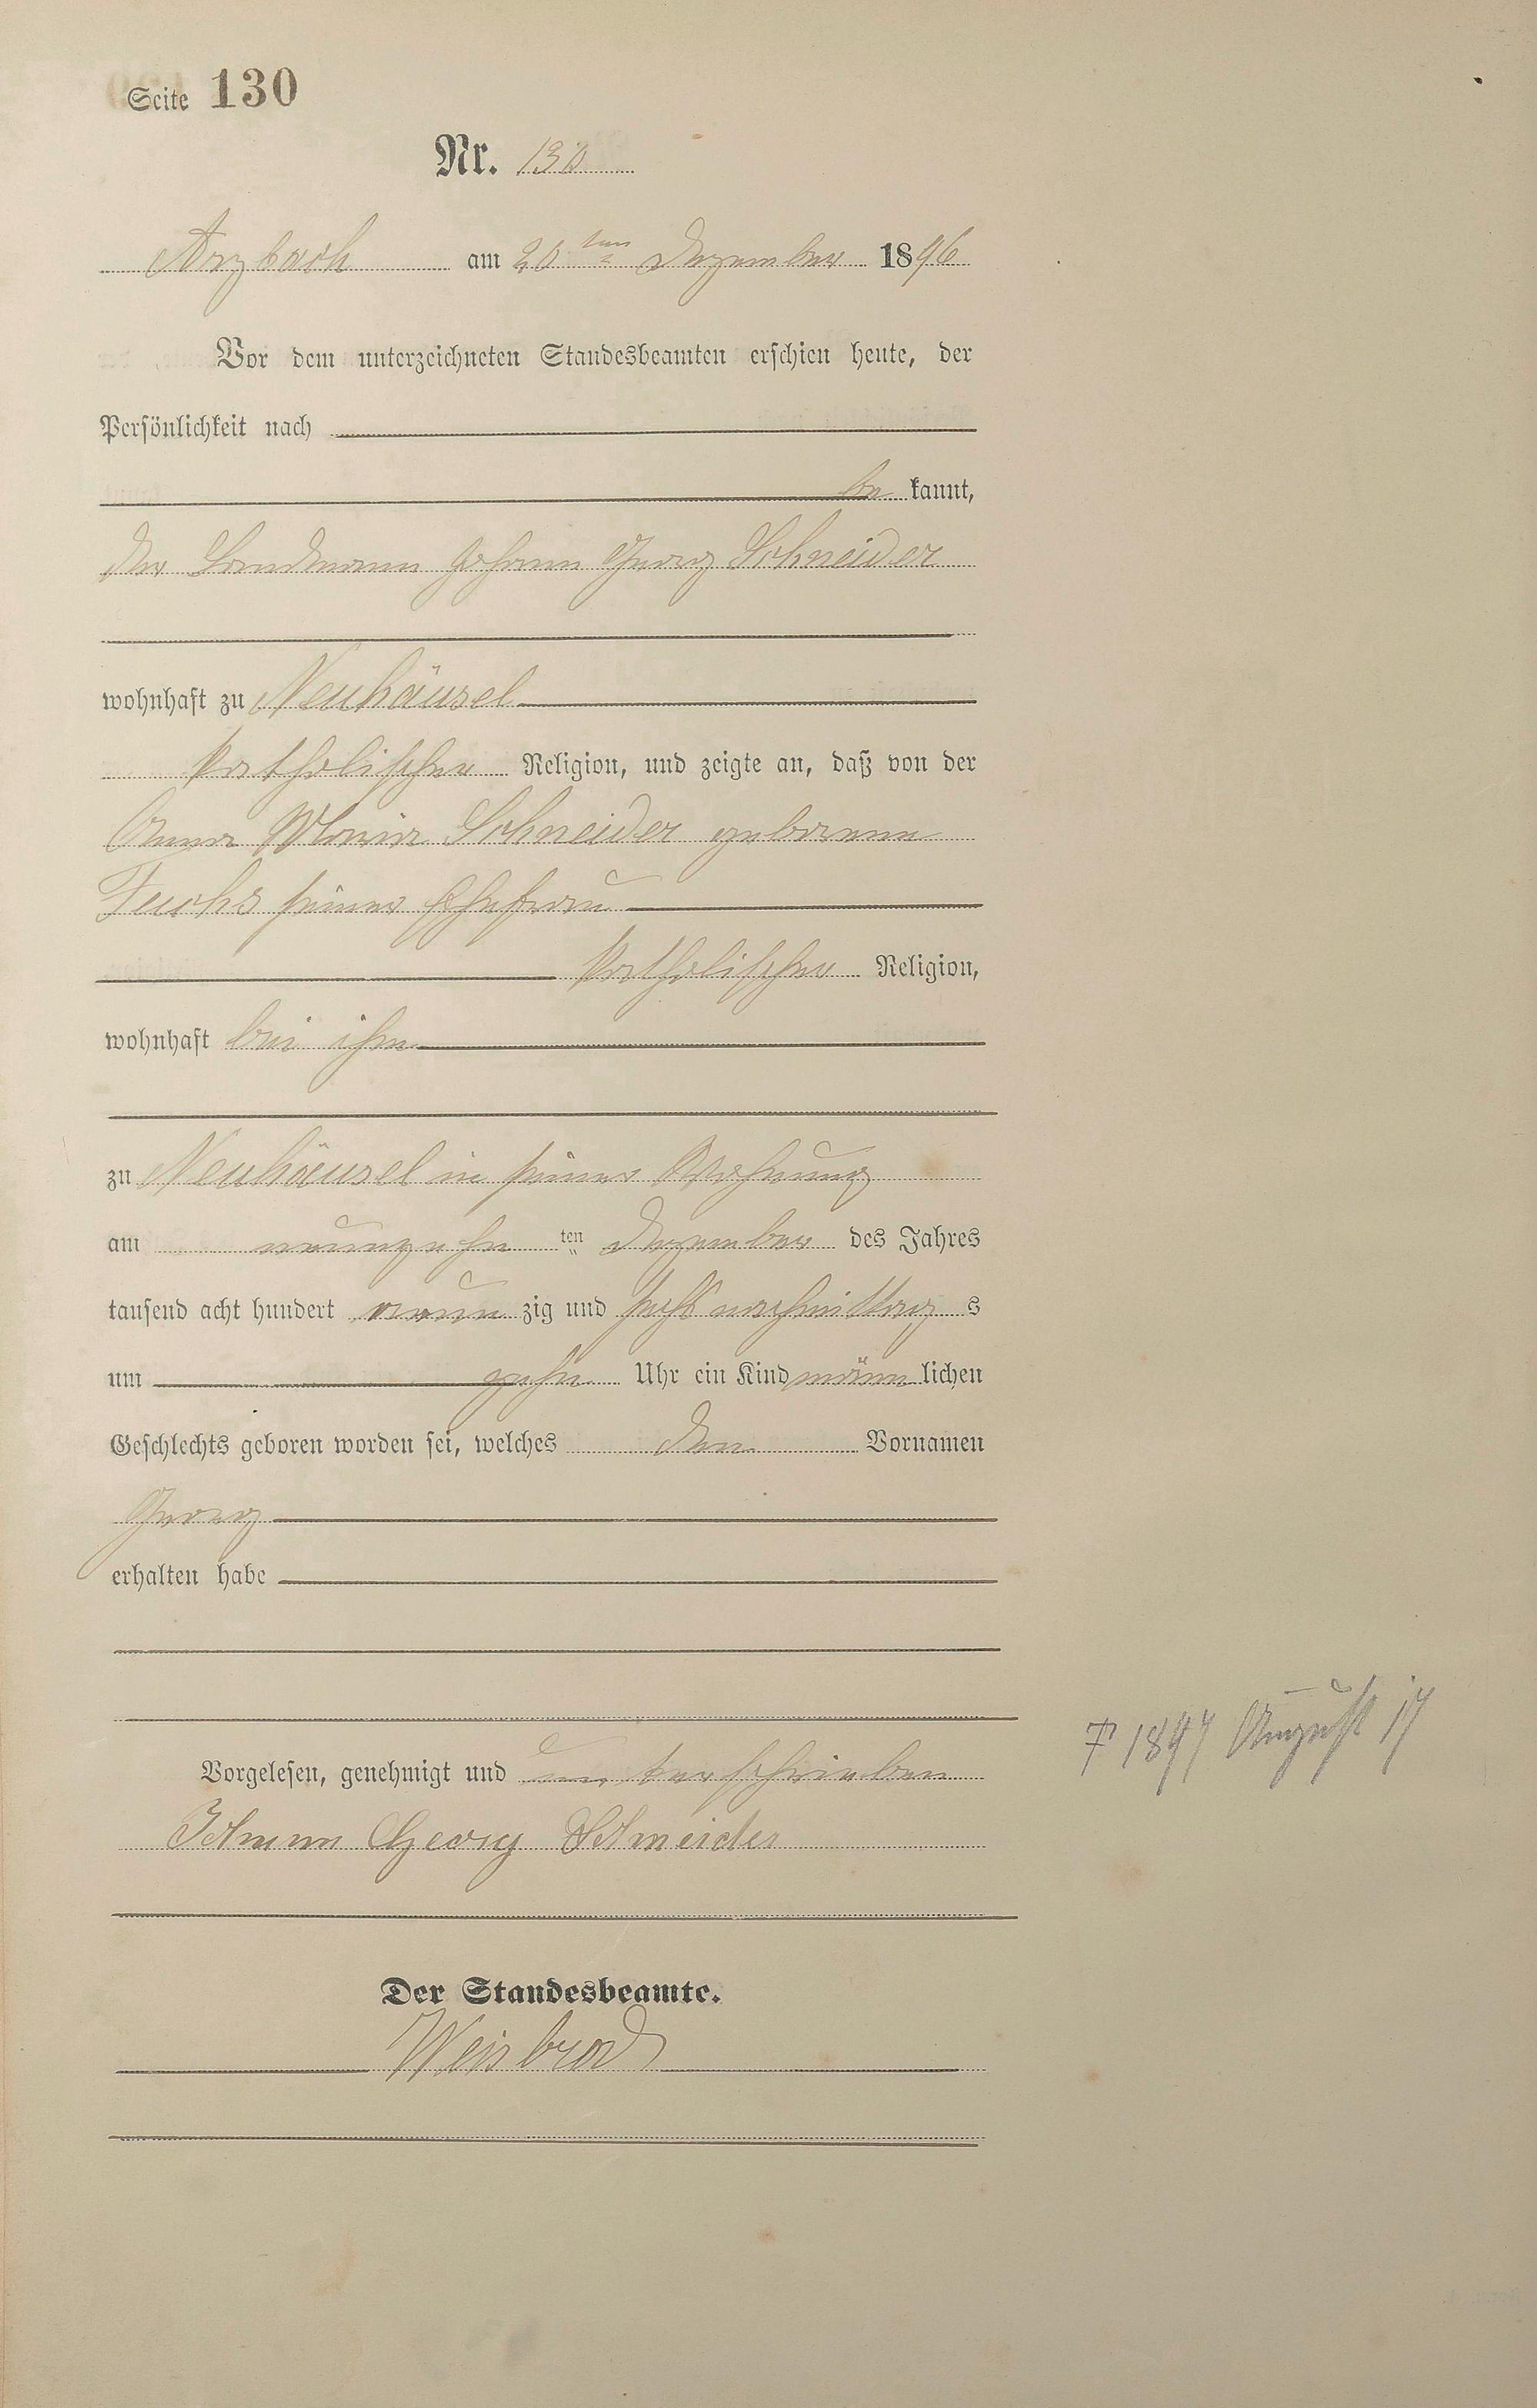 Seite 130
Nr. 130
Arzbach am 20ten Dezember 1896
Vor dem unterzeichneten Standesbeamten erschien heute, der
Persönlichkeit nach
be kannt,
der Landmann Johann Georg Schneider
wohnhaft zu Neuhäusel
katholischer Religion, und zeigte an, daß von der
Anna Maria Schneider geborene
Fuchs seiner Ehefrau
katholischer Religion,
wohnhaft bei ihm
zu Neuhäusel in seiner Wohnung
am neunzehn ten Dezember des Jahres
tausend acht hundert neun zig und sechs nachmittag s
um zehn Uhr ein Kind männ lichen
Geschlechts geboren worden sei, welches den Vornamen
Georg
erhalten habe
† 1897 August 17
Vorgelesen, genehmigt und unterschrieben
Johann Georg Schneider
Der Standesbeamte.
Weisbrod